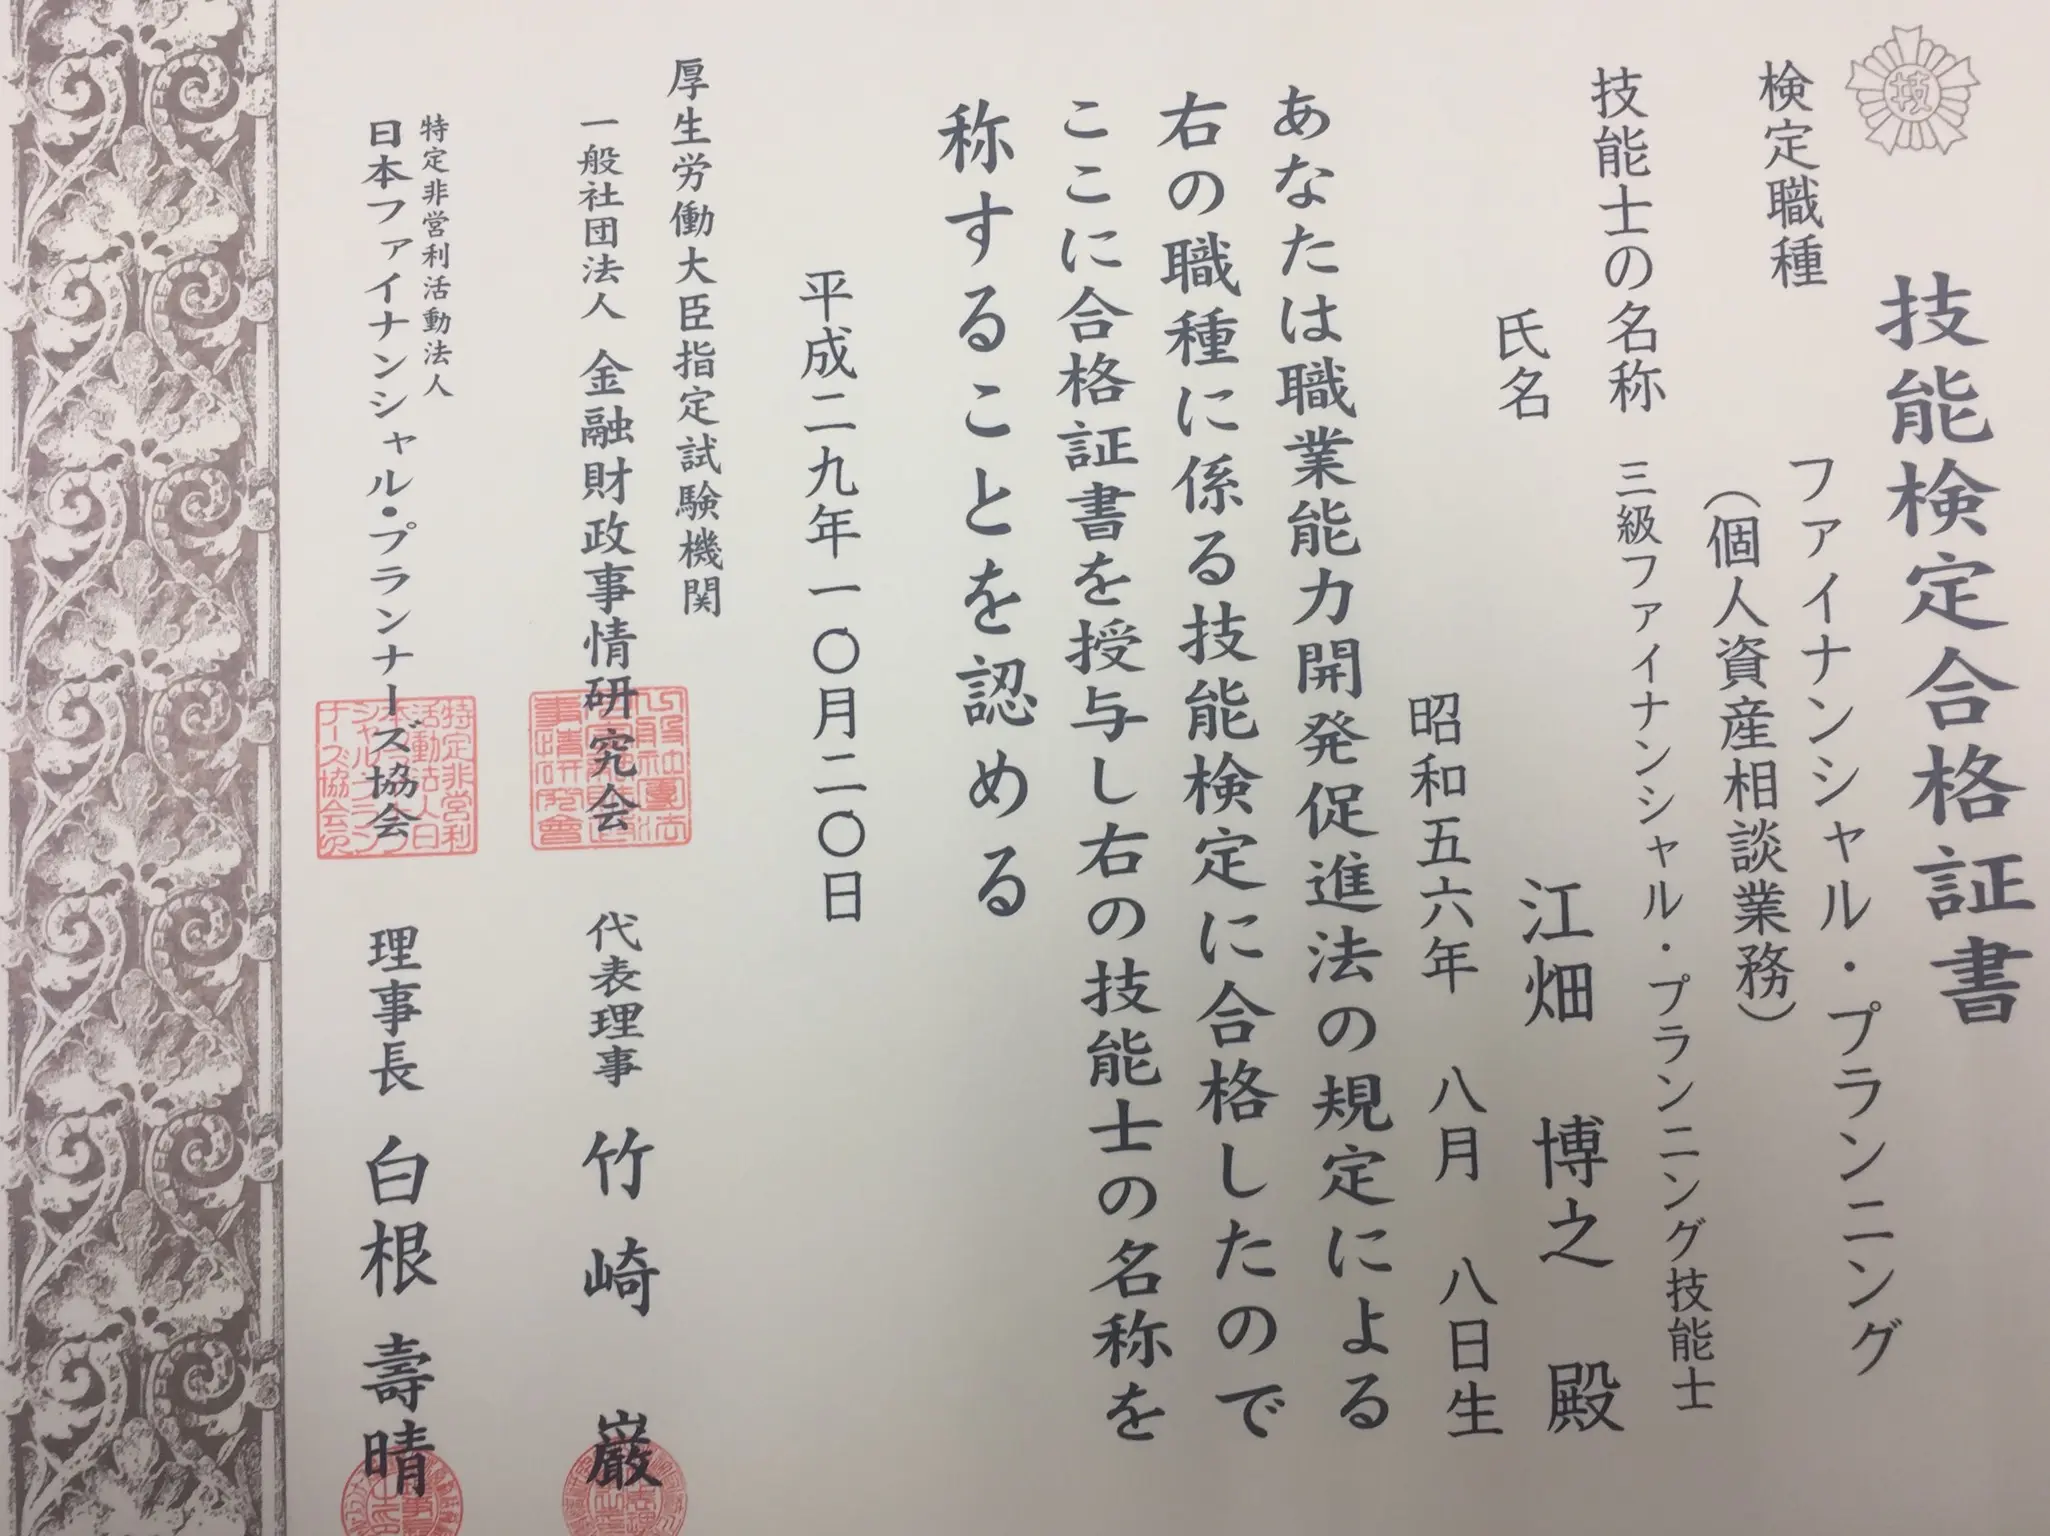 技
技能検定合格証書
検定職種 ファイナンシャル・プランニング
(個人資産相談業務)
技能士の名称 三級ファイナンシャル・プランニング技能士
氏名 江畑 博之 殿
昭和五六年 八月 八日生
あなたは職業能力開発促進法の規定による
右の職種に係る技能検定に合格したので
ここに合格証書を授与し右の技能士の名称を
称することを認める
平成二九年一〇月二〇日
厚生労働大臣指定試験機関
一般社団法人 金融財政事情研究会 代表理事 竹崎 巌
特定非営利活動法人
日本ファイナンシャル・プランナーズ協会 理事長 白根 壽晴